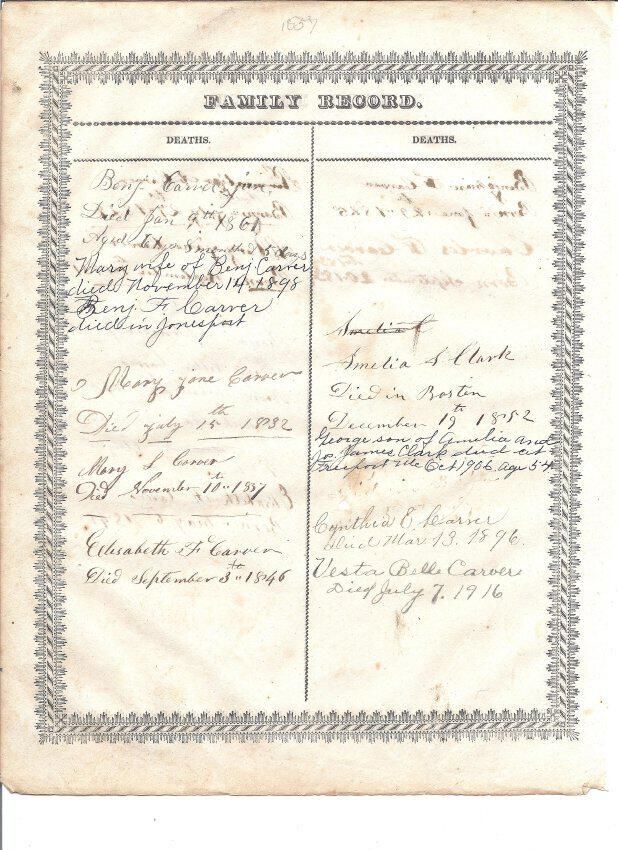 1857
FAMILY RECORD.
DEATHS.
Benj Carver jun.
Died Jan 9th 1861
Aged
Mary wife of Benj Carver
died November 14 1898
Benj. F. Carver
died in Jonesport
Mary Jane Carver
Died July 15th 1832
Mary S Carver
Died November 10th 1837
Elisabeth F Carver
Died September 3th 1846
DEATHS.
Amelia C
Amelia S Clark
Died in Boston
December 19th 1852
George son of Amelia and
James Clark died at
Freeport Me Oct 1906 age 54
Cynthia E. Carver
Died Mar. 13. 1896.
Vesta Belle Carver
Died July 7. 1916